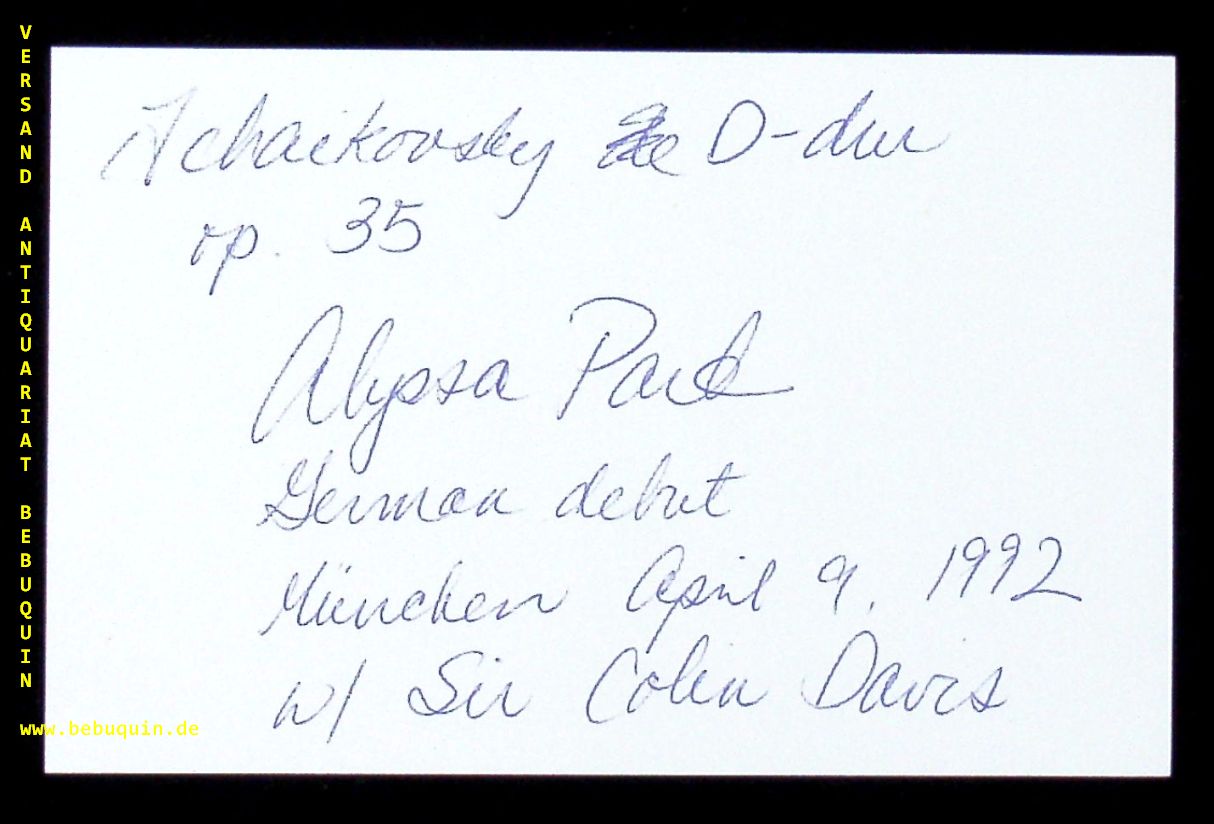 VERSAND ANTIQUARIAT BEBUQUIN
www.bebuquin.de
Tchaikovsky D-dur
op. 35
Alyssa Park
German debut
München April 9, 1992
w/ Sir Colin Davis